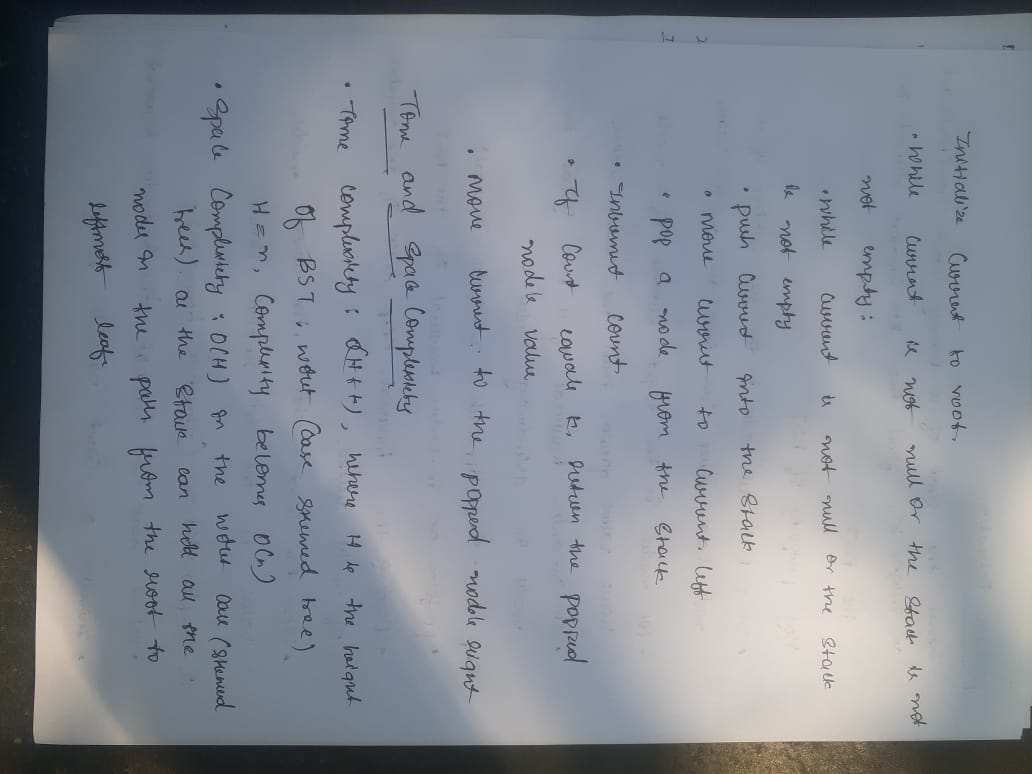 Initialize Current to root.
• While Current is not null or the Stack is not
not empty:
• While Current is not null or the Stack
is not empty
• push Current into the Stack
• move Current to Current. left
• pop a node from the Stack
• Increment Count.
• If Count equals k, return the popped
node's value.
• Move Current to the popped node right
Time and Space Complexity
• Time Complexity : O(H + k), where H is the height
of BST ; worst (case skewed tree)
H = n, Complexity becomes O(n)
• Space Complexity : O(H) in the worst case (skewed
trees). as the Stack can hold all the
nodes in the path from the root to
leftmost leaf.